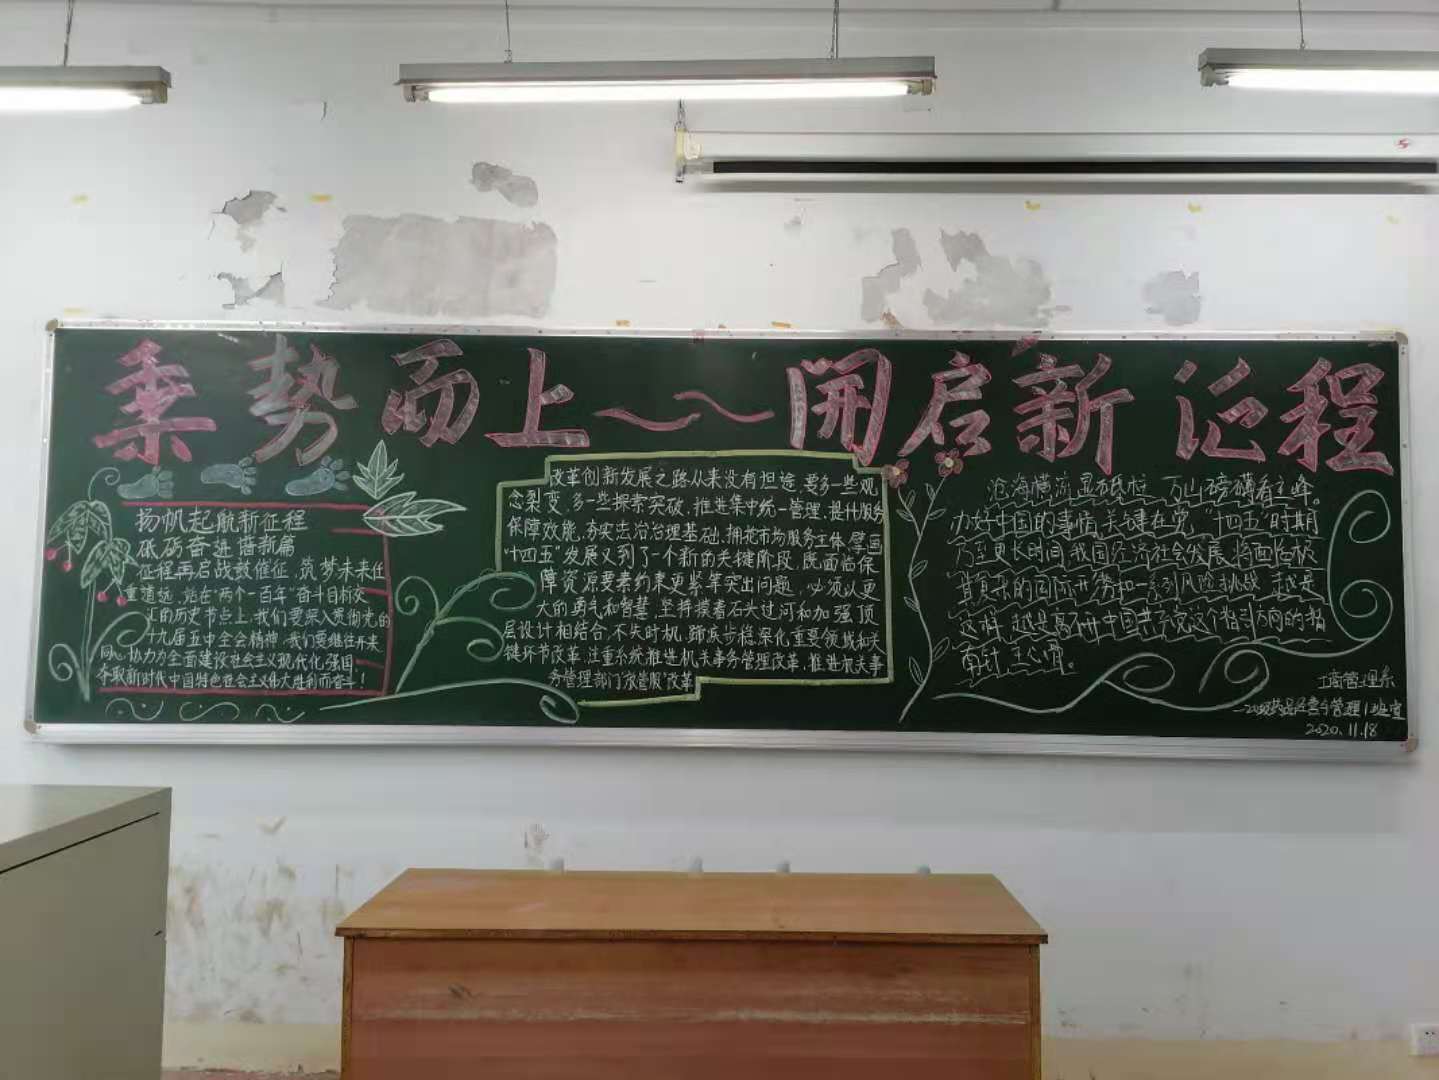 乘势而上～～开启新征程
扬帆起航新征程
砥砺奋进谱新篇
征程再启战鼓催征,筑梦未来任
重道远,站在"两个一百年"奋斗目标交
汇的历史节点上,我们要深入贯彻党的
十九届五中全会精神,我们要继往开来
同心协力为全面建设社会主义现代化强国
夺取新时代中国特色社会主义伟大胜利而奋斗!
改革创新发展之路从来没有坦途,要多一些观
念裂变,多一些探索突破,推进集中统一管理,提升服务
保障效能,夯实法治治理基础,拥抱市场服务主体,擘画
"十四五"发展又到了一个新的关键阶段,既面临保
障资源要素约束更紧等突出问题,必须以更
大的勇气和智慧,坚持摸着石头过河和加强顶
层设计相结合,不失时机,蹄疾步稳深化重要领域和关
键环节改革,注重系统推进机关事务管理改革,推进机关事
务管理部门"放管服"改革
沧海横流显砥柱,万山磅礴看主峰。
办好中国的事情,关键在党。"十四五"时期
乃至更长时间,我国经济社会发展将面临极
其复杂的国际形势和一系列风险挑战,越是
这样,越是离不开中国共产党这个指引方向的指
南针、主心骨。
工商管理系
药品经营与管理1班宣
2020.11.18